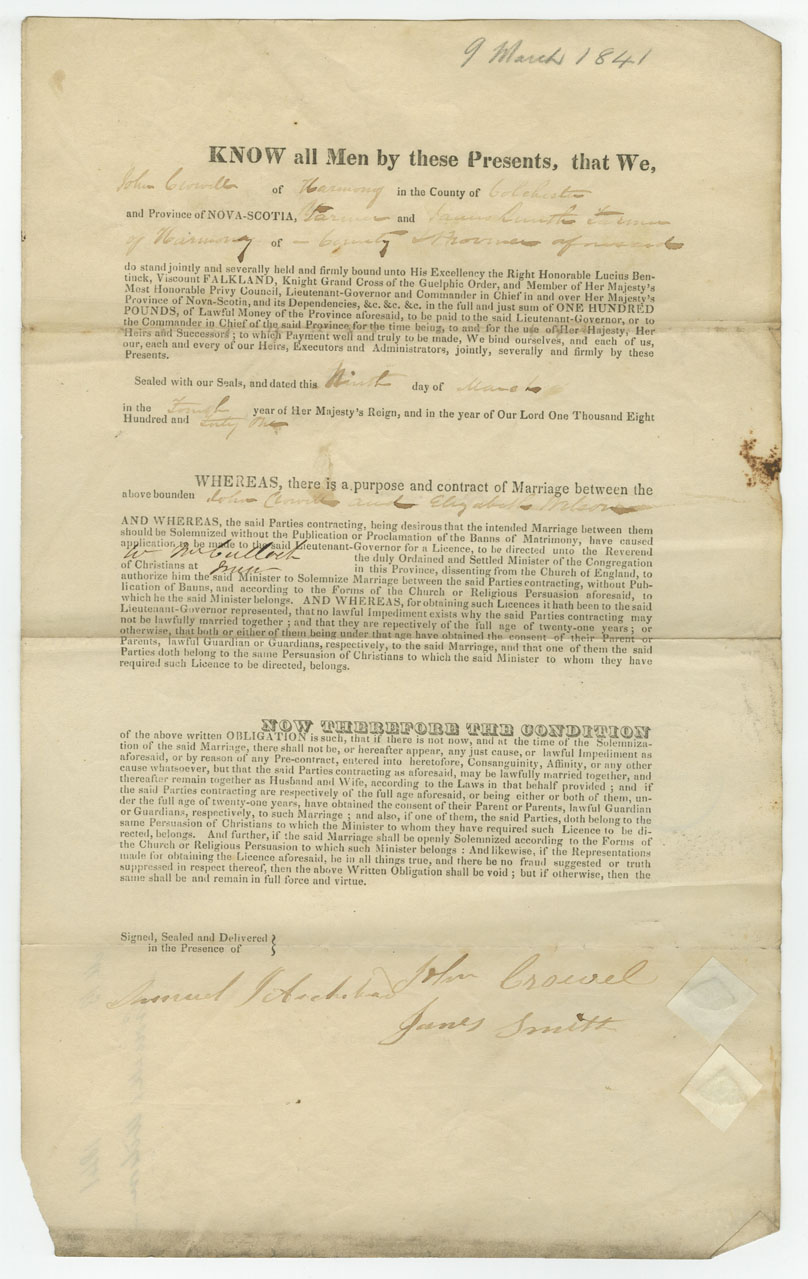 9 March 1841
KNOW all Men by these Presents, that We,
John Crowell of Harmony in the County of Colchester
and Province of NOVA-SCOTIA, Farmer and James Smith Farmer
of Harmony of County & Province aforesaid
do stand jointly and severally held and firmly bound unto His Excellency the Right Honorable Lucius Ben-
tinck, Viscount FALKLAND, Knight Grand Cross of the Guelphic Order, and Member of Her Majesty's
Most Honorable Privy Council, Lieutenant-Governor and Commander in Chief in and over Her Majesty's
Province of Nova-Scotia, and its Dependencies, &c. &c. &c. in the full and just sum of ONE HUNDRED
POUNDS, of Lawful Money of the Province aforesaid, to be paid to the said Lieutenant-Governor, or to
the Commander in Chief of the said Province for the time being, to and for the use of Her Majesty, Her
Heirs and Successors ; to which Payment well and truly to be made, We bind ourselves, and each of us,
our, each and every of our Heirs, Executors and Administrators, jointly, severally and firmly by these
Presents.
Sealed with our Seals, and dated this Ninth day of March
in the Fourth year of Her Majesty's Reign, and in the year of Our Lord One Thousand Eight
Hundred and forty One
WHEREAS, there is a purpose and contract of Marriage between the
above bounden John Crowell and Elizabeth Wilson
AND WHEREAS, the said Parties contracting, being desirous that the intended Marriage between them
should be Solemnized without the Publication or Proclamation of the Banns of Matrimony, have caused
application to be made to the said Lieutenant-Governor for a Licence, to be directed unto the Reverend
Wm McCulloch the duly Ordained and Settled Minister of the Congregation
of Christians at Truro in this Province, dissenting from the Church of England, to
authorize him the said Minister to Solemnize Marriage between the said Parties contracting, without Pub-
lication of Banns, and according to the Forms of the Church or Religious Persuasion aforesaid, to
which he the said Minister belongs. AND WHEREAS, for obtaining such Licences it hath been to the said
Lieutenant-Governor represented, that no lawful Impediment exists why the said Parties contracting may
not be lawfully married together ; and that they are repectively of the full age of twenty-one years ; or
otherwise, that both or either of them being under that age have obtained the consent of their Parent or
Parents, lawful Guardian or Guardians, respectively, to the said Marriage, and that one of them the said
Parties doth belong to the same Persuasion of Christians to which the said Minister to whom they have
required such Licence to be directed, belongs.
NOW THEREFORE THE CONDITION
of the above written OBLIGATION is such, that if there is not now, and at the time of the Solemniza-
tion of the said Marriage, there shall not be, or hereafter appear, any just cause, or lawful Impediment as
aforesaid, or by reason of any Pre-contract, entered into heretofore, Consanguinity, Affinity, or any other
cause whatsoever, but that the said Parties contracting as aforesaid, may be lawfully married together, and
thereafter remain together as Husband and Wife, according to the Laws in that behalf provided ; and if
the said Parties contracting are respectively of the full age aforesaid, or being either or both of them, un-
der the full age of twenty-one years, have obtained the consent of their Parent or Parents, lawful Guardian
or Guardians, respectively, to such Marriage ; and also, if one of them, the said Parties, doth belong to the
same Persuasion of Christians to which the Minister to whom they have required such Licence to be di-
rected, belongs. And further, if the said Marriage shall be openly Solemnized according to the Forms of
the Church or Religious Persuasion to which such Minister belongs : And likewise, if the Representations
made for obtaining the Licence aforesaid, be in all things true, and there be no fraud suggested or truth
suppressed in respect thereof, then the above Written Obligation shall be void ; but if otherwise, then the
same shall be and remain in full force and virtue.
Signed, Sealed and Delivered
in the Presence of
Samuel J Archibald John Crowel
James Smith